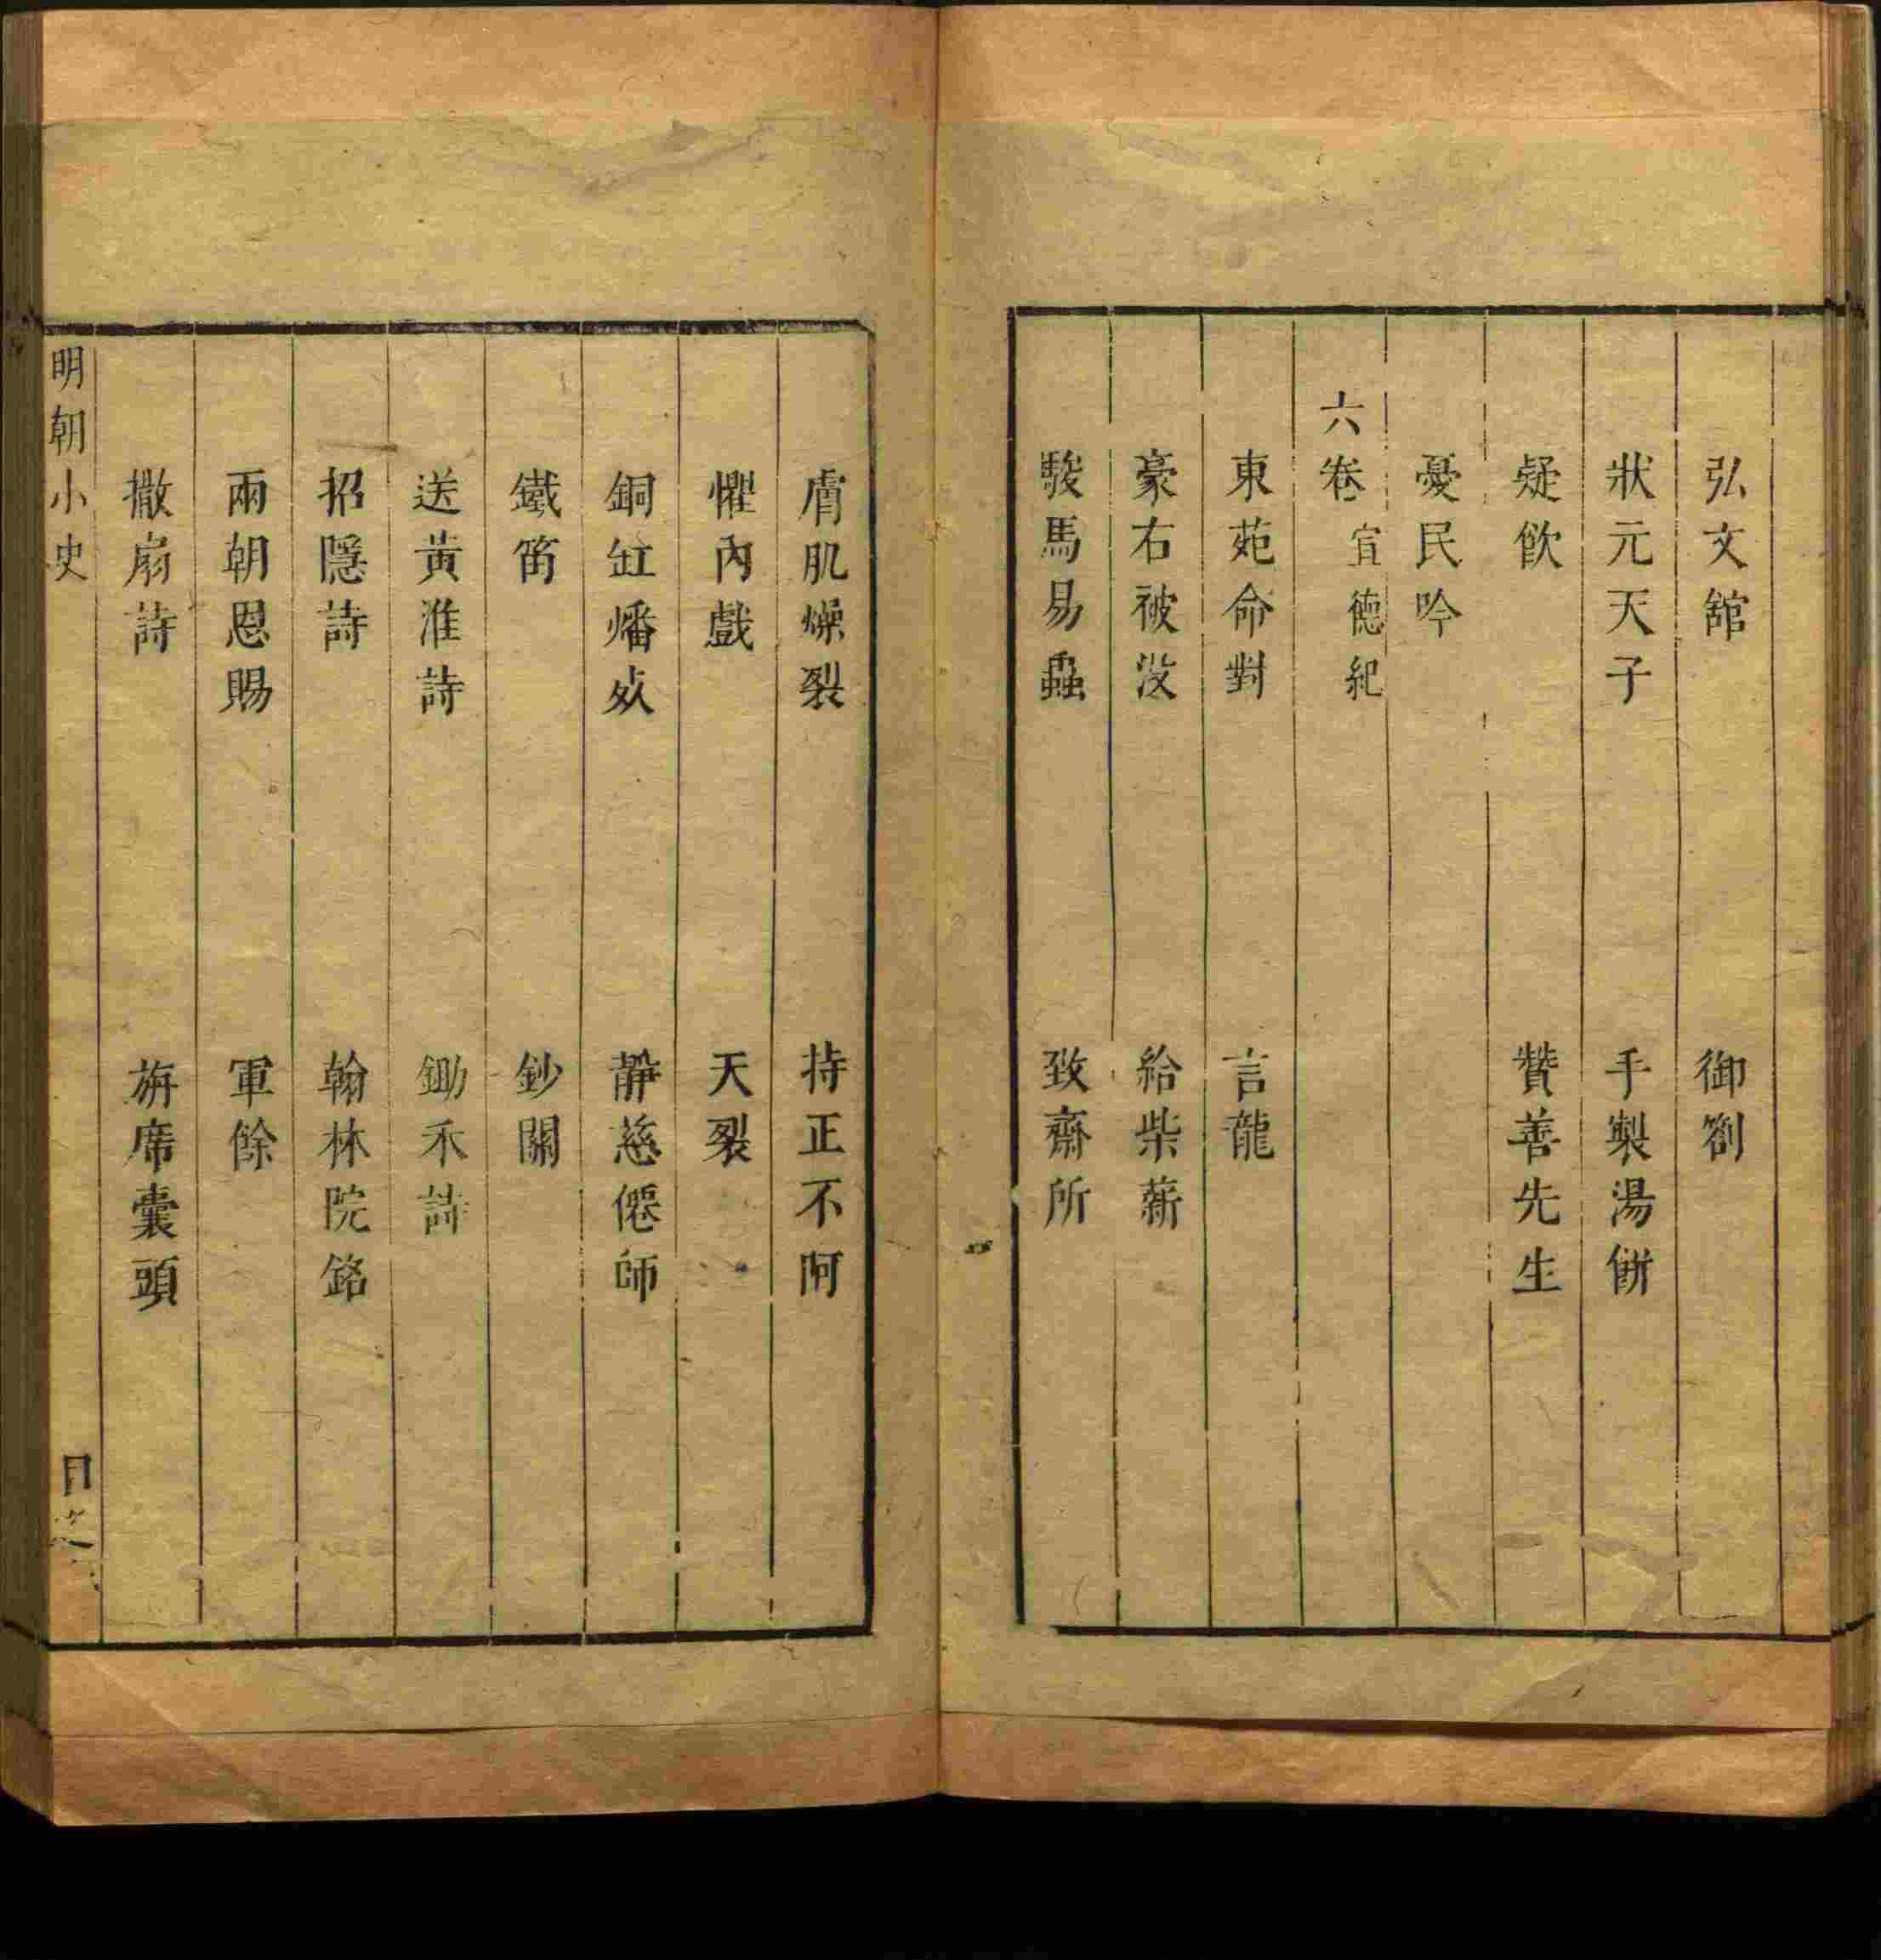 弘文舘　御劄
狀元天子　手製湯餅
疑飲　贊善先生
憂民吟
六卷　宣德紀
東苑命對　言龍
豪右被没　給柴薪
駿馬易蟲　致齋所
膚肌燥裂　持正不阿
懼內戲　天裂
銅缸燔死　靜慈僊師
鐵笛　鈔關
送黃淮詩　鋤禾詩
招隱詩　翰林院銘
兩朝恩賜　軍餘
撒扇詩　旃席囊頭
明朝小史　目